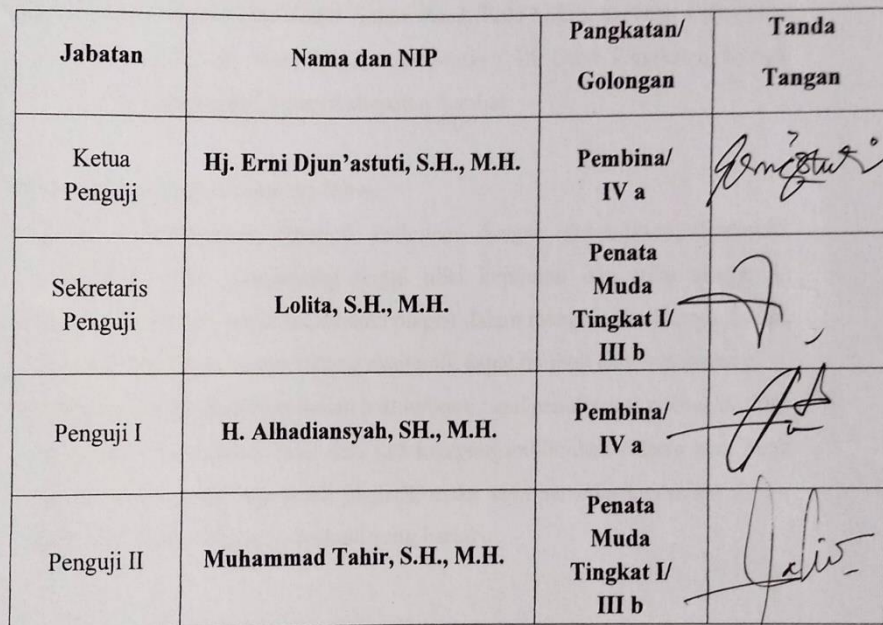 Jabatan
Nama dan NIP
Pangkatan/
Golongan
Tanda
Tangan
Ketua
Penguji
Hj. Erni Djun'astuti, S.H., M.H.
Pembina/
IV a
Sekretaris
Penguji
Lolita, S.H., M.H.
Penata
Muda
Tingkat I/
III b
Penguji I
H. Alhadiansyah, SH., M.H.
Pembina/
IV a
Penguji II
Muhammad Tahir, S.H., M.H.
Penata
Muda
Tingkat I/
III b